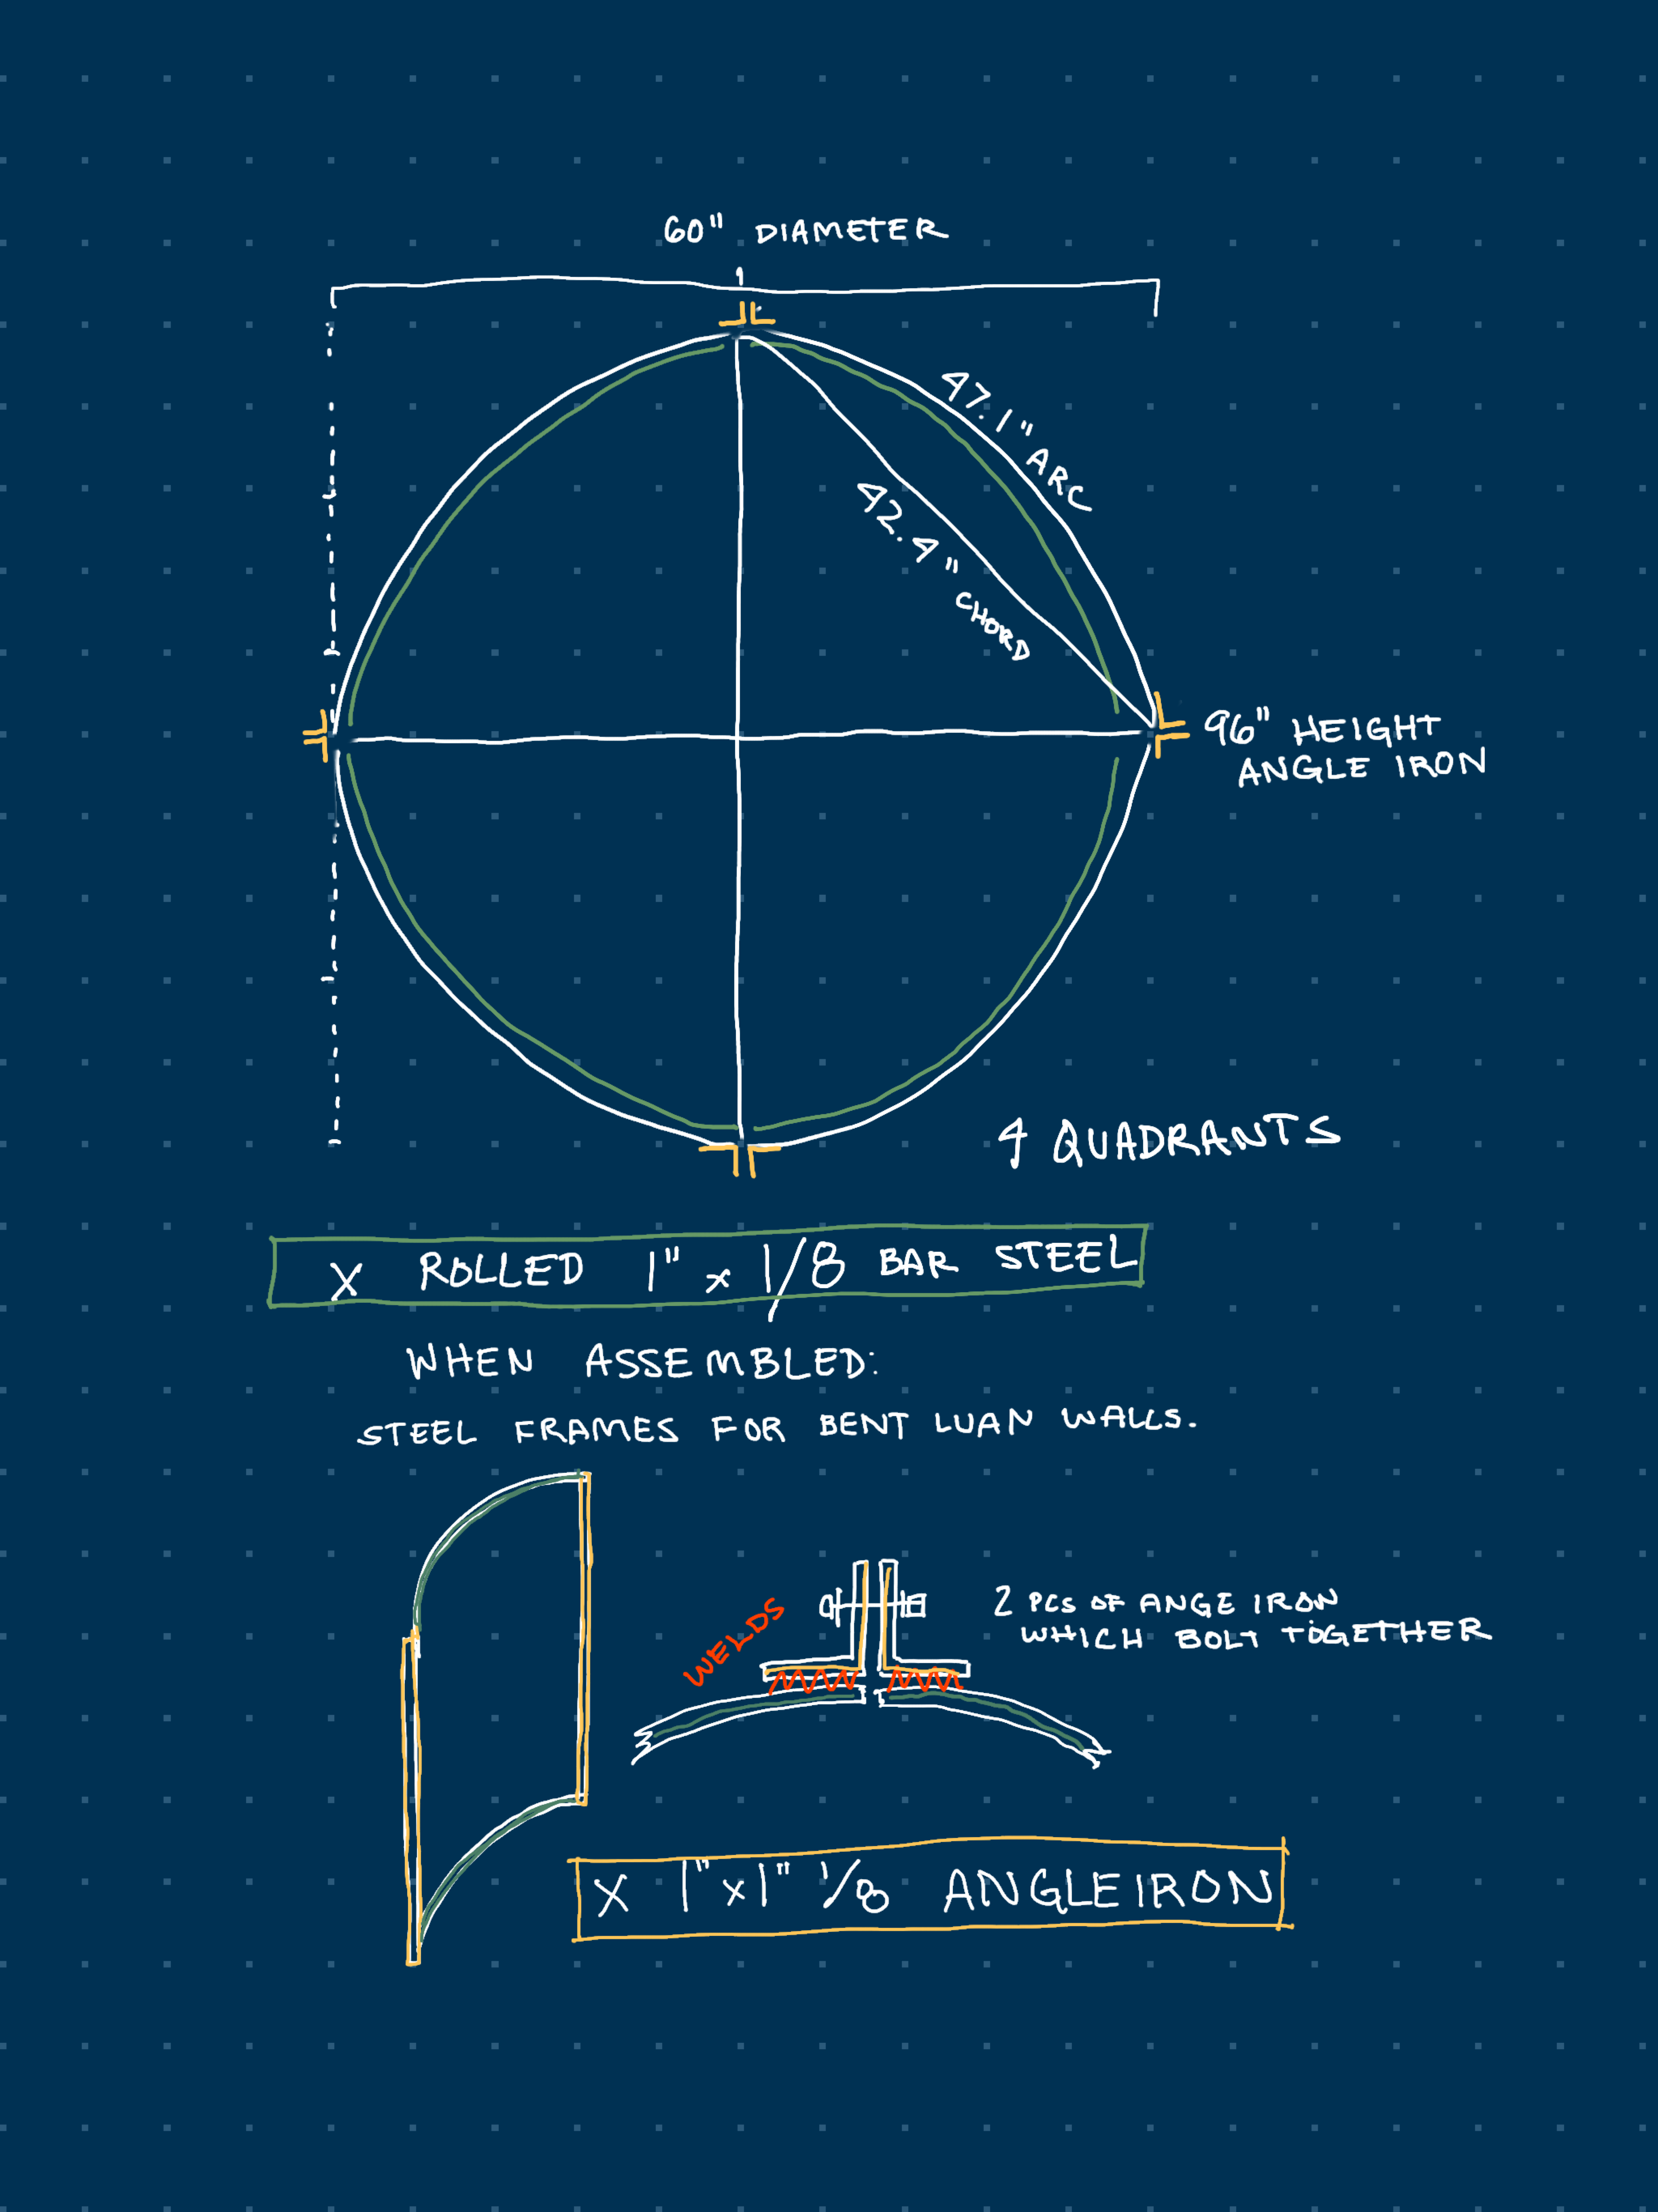 60" DIAMETER
47.1" ARC
42.4" CHORD
96" HEIGHT
ANGLE IRON
4 QUADRANTS
X ROLLED 1" x 1/8 BAR STEEL
WHEN ASSEMBLED:
STEEL FRAMES FOR BENT LUAN WALLS.
WELDS
2 PCS OF ANGE IRON
WHICH BOLT TOGETHER
X 1"x1" 1/8 ANGLE IRON